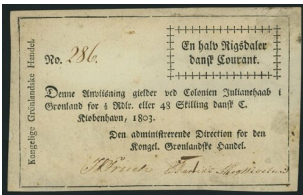 Kongelige Grönlandske Handel.
No. 286.
En halv Rigsdaler
dansk Courant.
Denne Anvisning gielder ved Colonien Julianehaab i
Grønland for ½ Rdlr. eller 48 Skilling dansk C.
Kiøbenhavn, 1803.
Den administrerende Direction for den
Kongel. Grønlandske Handel.